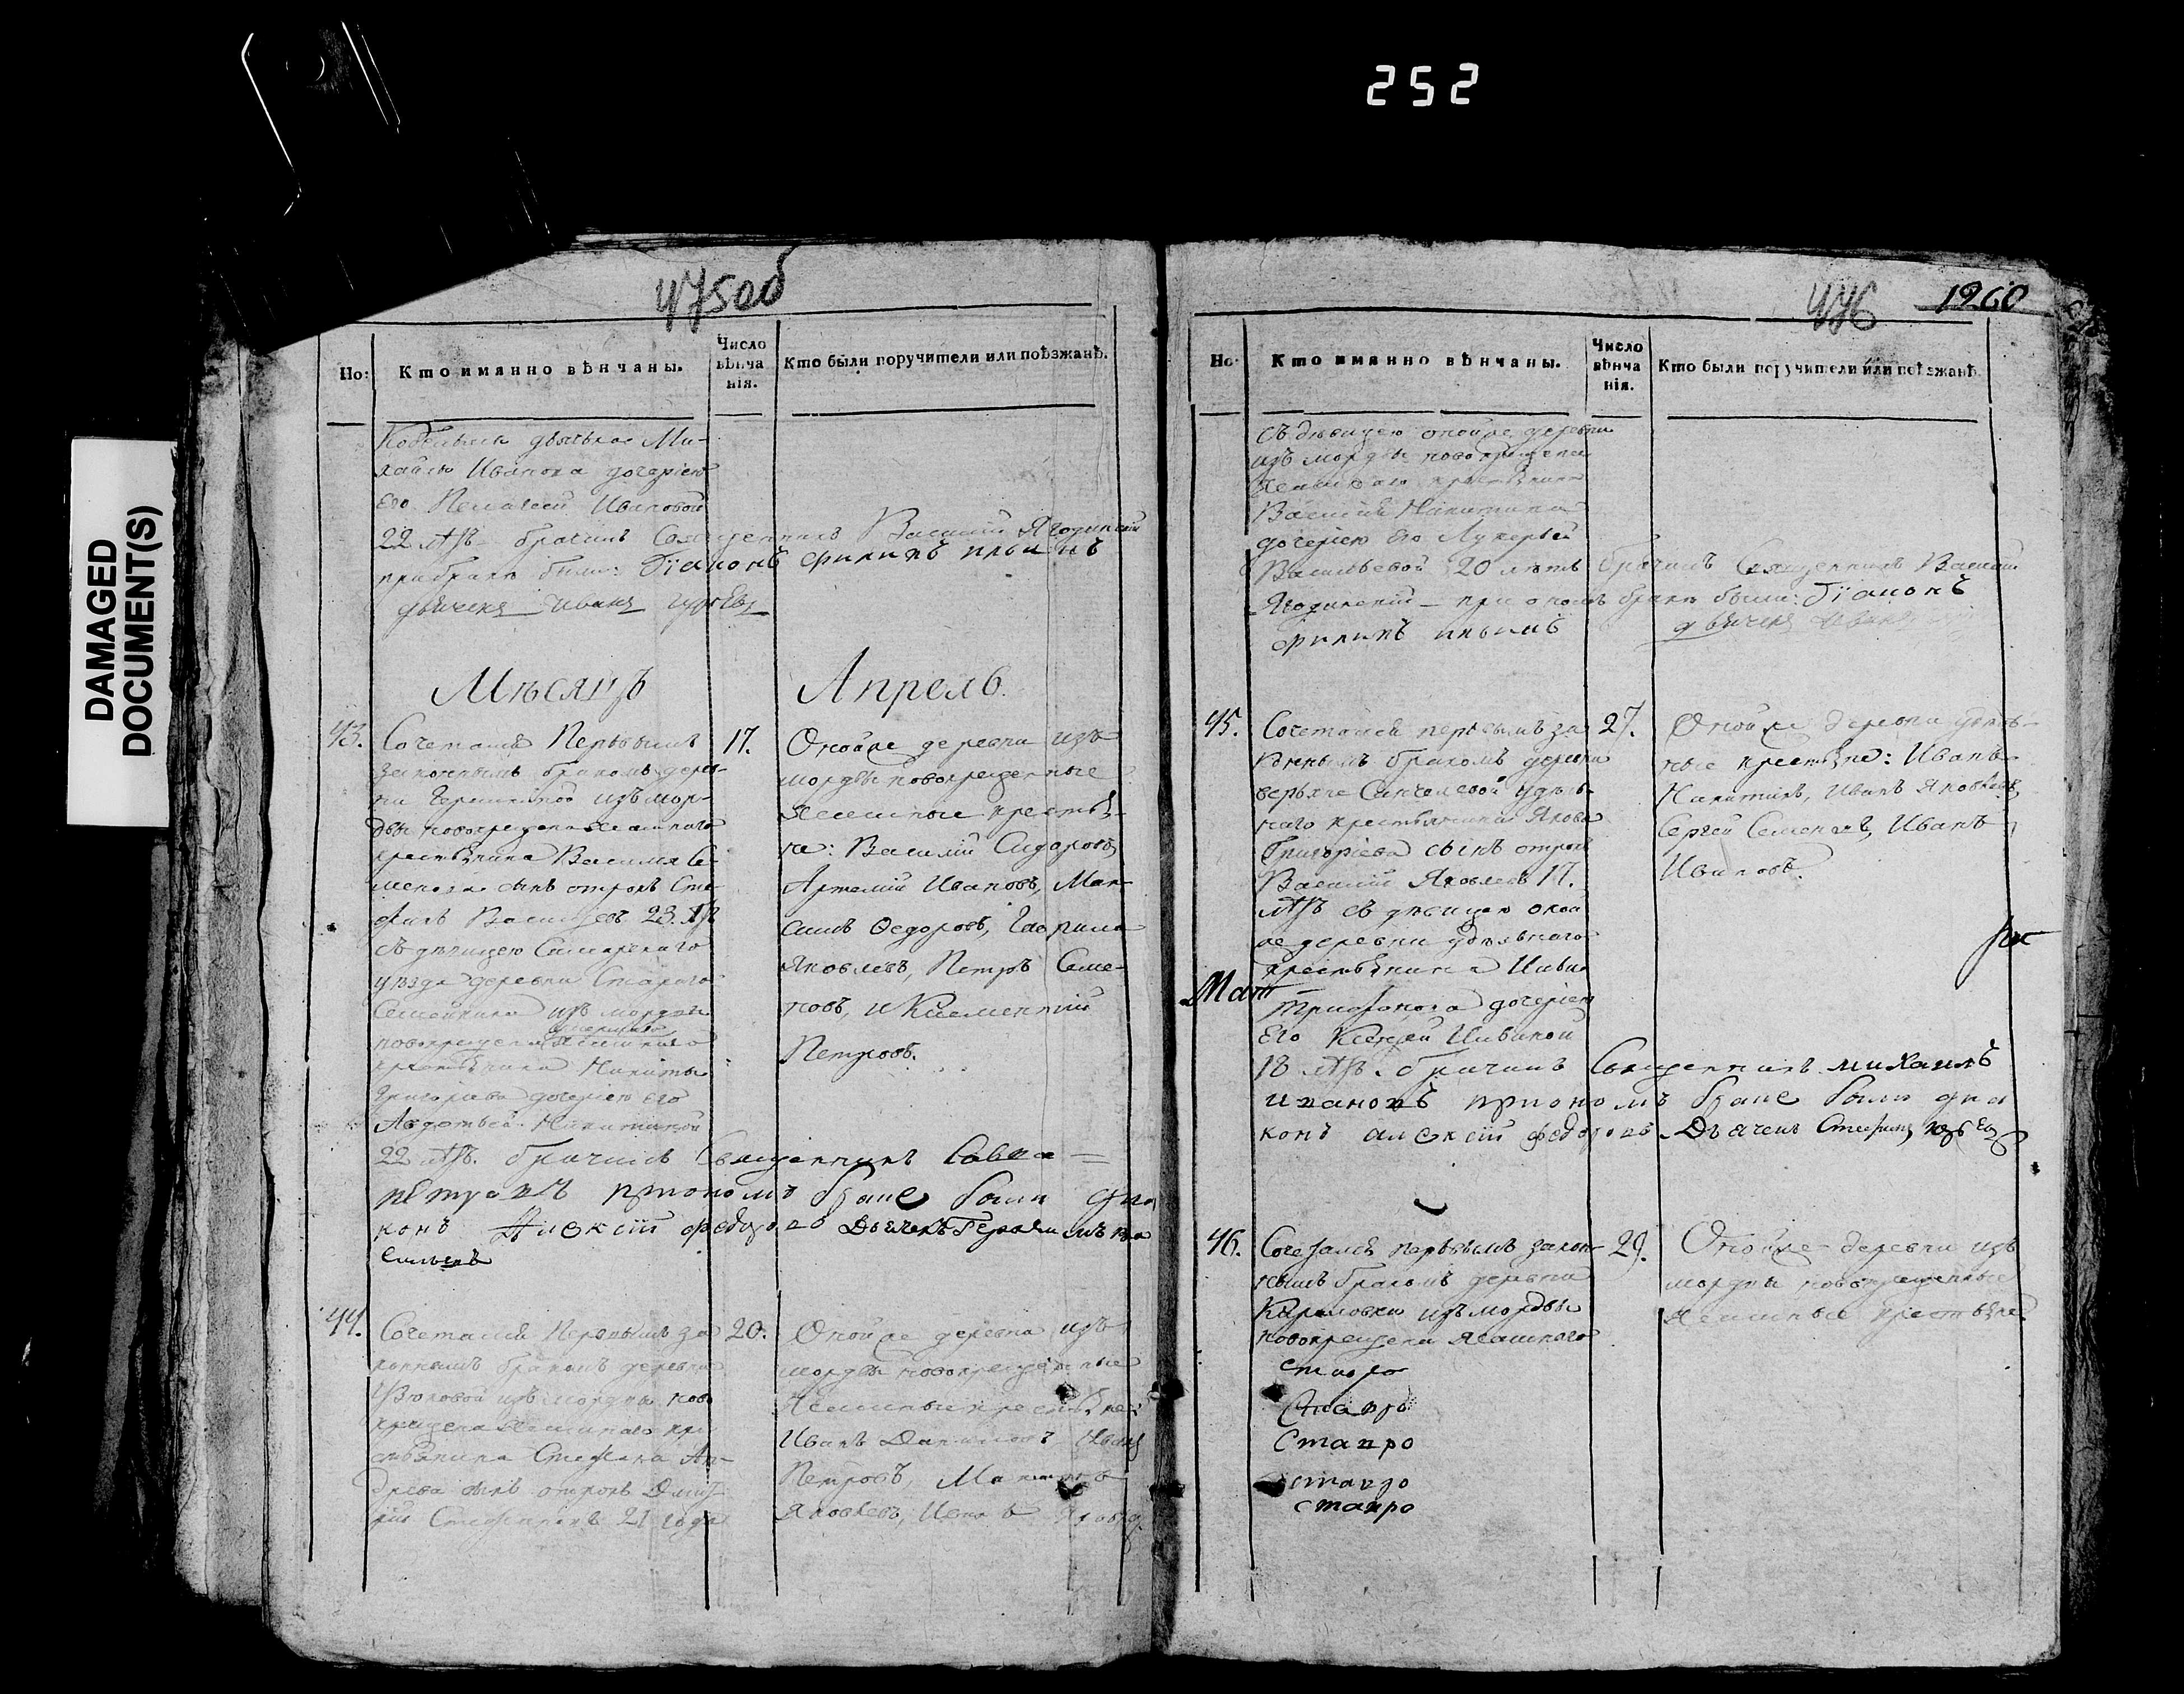 252
DAMAGED
DOCUMENT(S)
475об
Но:
Кто имянно вѣнчаны.
Число
вѣнча
нія.
Кто были поручители или поѣзжанѣ.
Михайлы Иванова дочерію
Его Ивановой
22 лѣтъ браčилъ Священникъ Василій Ягодинскій
прибракѣ были: діаконъ филипъ ильинъ
дьячекъ Иванъ
Мѣсяцъ Апрель.
43.
Сочетался Первымъ
законнымъ бракомъ дерев-
ни изъ мор-
двы новокрещенъ ясашнаго
крестьянина Василья Се-
менова сынъ отрокъ Сте-
фанъ Васильевъ 23 лѣтъ
съ дѣвицею Самарскаго
уѣзда деревни Стараго
Семейкина изъ мордвы
новокрещена ясашнаго
крестьянина Никиты
Григорьева дочерію его
Авдотьей Никитиной
22 лѣтъ. брачилъ Священникъ Савва
петровъ приономъ браке были диа
конъ Алексій федоровъ Дьячекъ Герасимъ ва
сильевъ
17.
Оной же деревни изъ
мордвы новокрещенные
ясашные крестья-
не: Василій Сидоровъ,
Артемій Ивановъ, Мак-
симъ Федоровъ, Гаврила
Яковлевъ, Петръ Семе-
новъ, и Климентій
Петровъ.
44.
Сочетался Первымъ за
коннымъ бракомъ деревни
изъ мордвы ново
крещена ясашнаго кре
стьянина Стефана Ан-
дреева сынъ отрокъ Дмит-
рій Стефановъ 21 года
20.
Оной же деревни изъ
мордвы новокрещенные
ясашные крестьяне:
Иванъ Даниловъ, Иванъ
Петровъ,
Яковлевъ,
476
1260
Но:
Кто имянно вѣнчаны.
Число
вѣнча
нія.
Кто были поручители или поѣзжанѣ.
съ дѣвицею оной же деревни
изъ мордвы новокрещена
ясашнаго крестьянина
Василія Никитина
дочерію его Лукерьей
Васильевой 20 лѣтъ брачилъ Священникъ Василій
Ягодинскій – при ономъ бракѣ были: діаконъ
филипъ ильинъ дьячекъ Иванъ
45.
Сочетался первымъ за
коннымъ бракомъ деревни
удѣль-
наго крестьянина Якова
Григорьева сынъ отрокъ
Василій Яковлевъ 17.
лѣтъ съ дѣвицею оной
же деревни удѣльнаго
крестьянина Ивана
Трифонова дочерію
Его Ксенией Ивановой
18 лѣтъ. брачилъ Священникъ михаилъ
ивановъ приономъ браке были диа
конъ алексій федоровъ Дьячекъ Стефанъ
27.
Оной же деревни удѣль-
ные крестьяне: Иванъ
Никитинъ, Иванъ Яковлевъ,
Сергей Семеновъ, Иванъ
Ивановъ.
46.
Сочетался первымъ закон-
нымъ бракомъ деревни
Кириловки изъ мордвы
новокрещена ясашнаго
ставро
Ставро
Ставро
ставро
ставро
29.
Оной же деревни изъ
мордвы новокрещенные
ясашные крестьяне